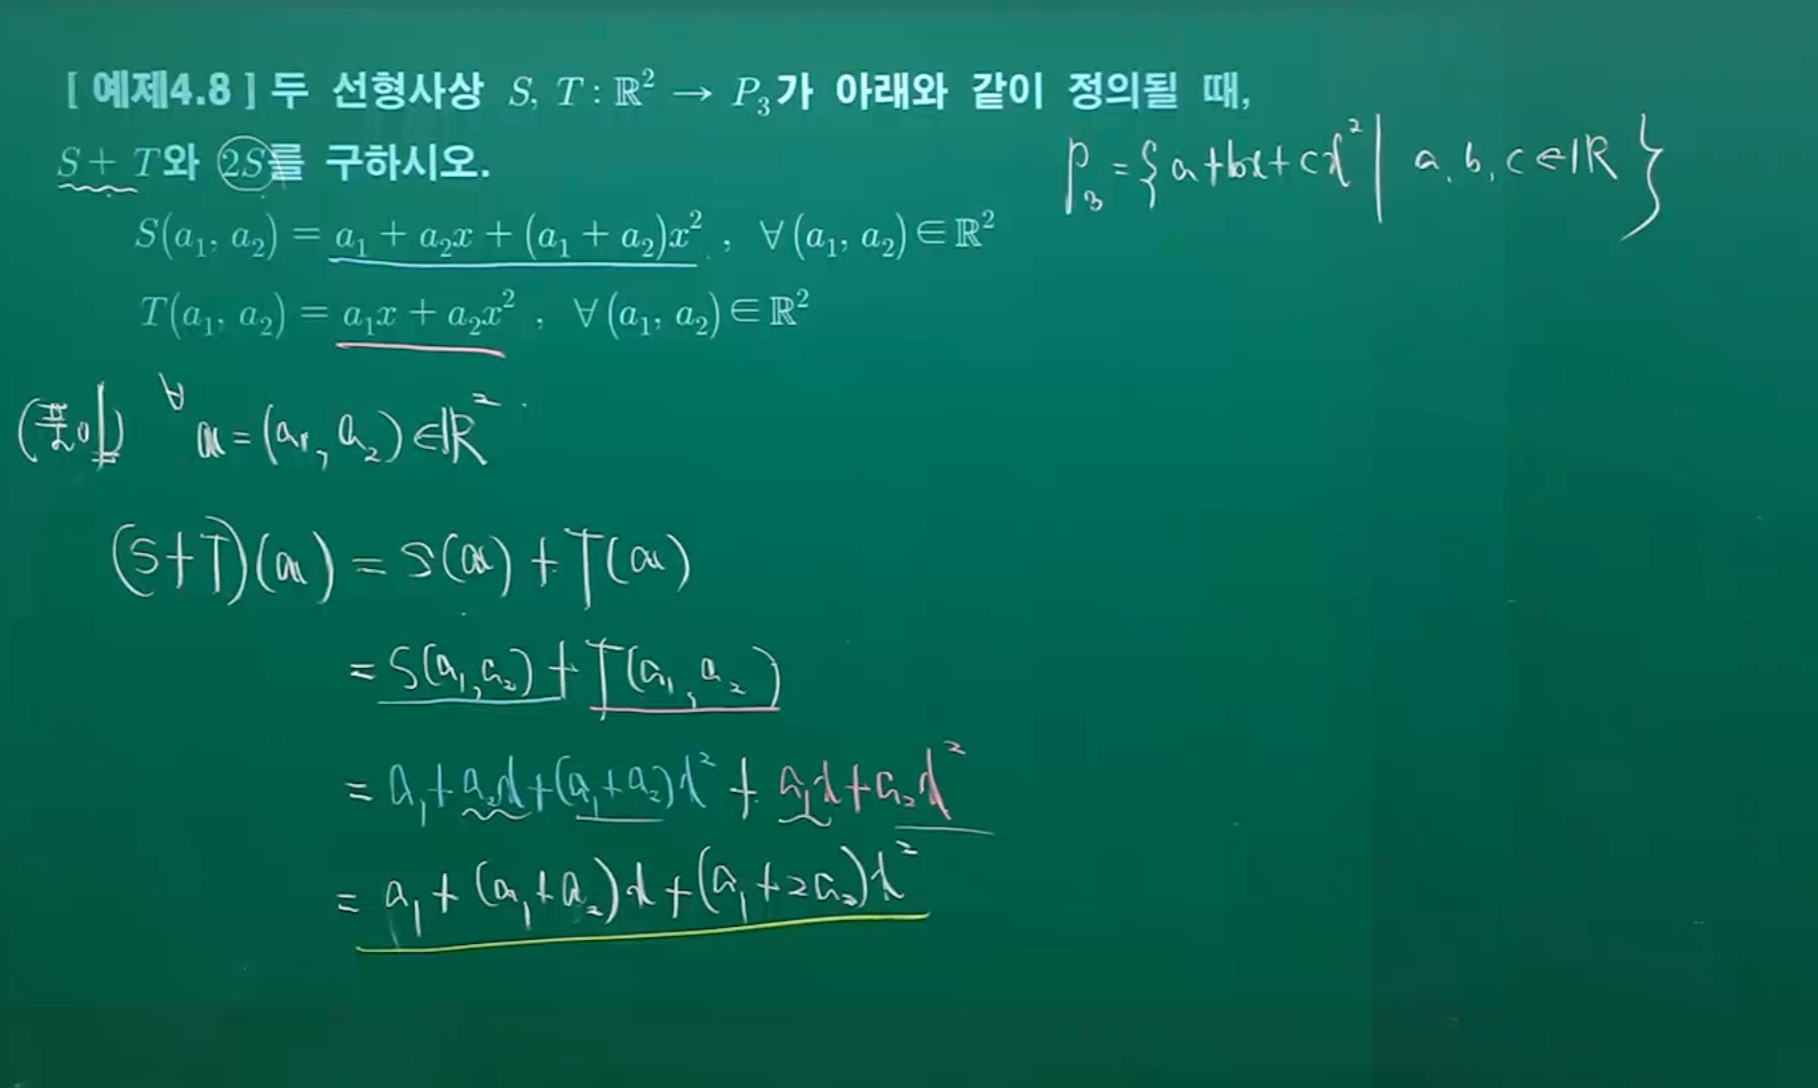 [ 예제4.8 ] 두 선형사상 S, T : ℝ² → P₃가 아래와 같이 정의될 때,
S + T와 2S를 구하시오.
P₃ = { a + bx + cx² | a, b, c ∈ ℝ }
S(a₁, a₂) = a₁ + a₂x + (a₁ + a₂)x² , ∀(a₁, a₂) ∈ ℝ²
T(a₁, a₂) = a₁x + a₂x² , ∀(a₁, a₂) ∈ ℝ²
(풀이) ∀a = (a₁, a₂) ∈ ℝ²
(S+T)(a) = S(a) + T(a)
= S(a₁, a₂) + T(a₁, a₂)
= a₁ + a₂x + (a₁ + a₂)x² + a₁x + a₂x²
= a₁ + (a₁ + a₂)x + (a₁ + 2a₂)x²